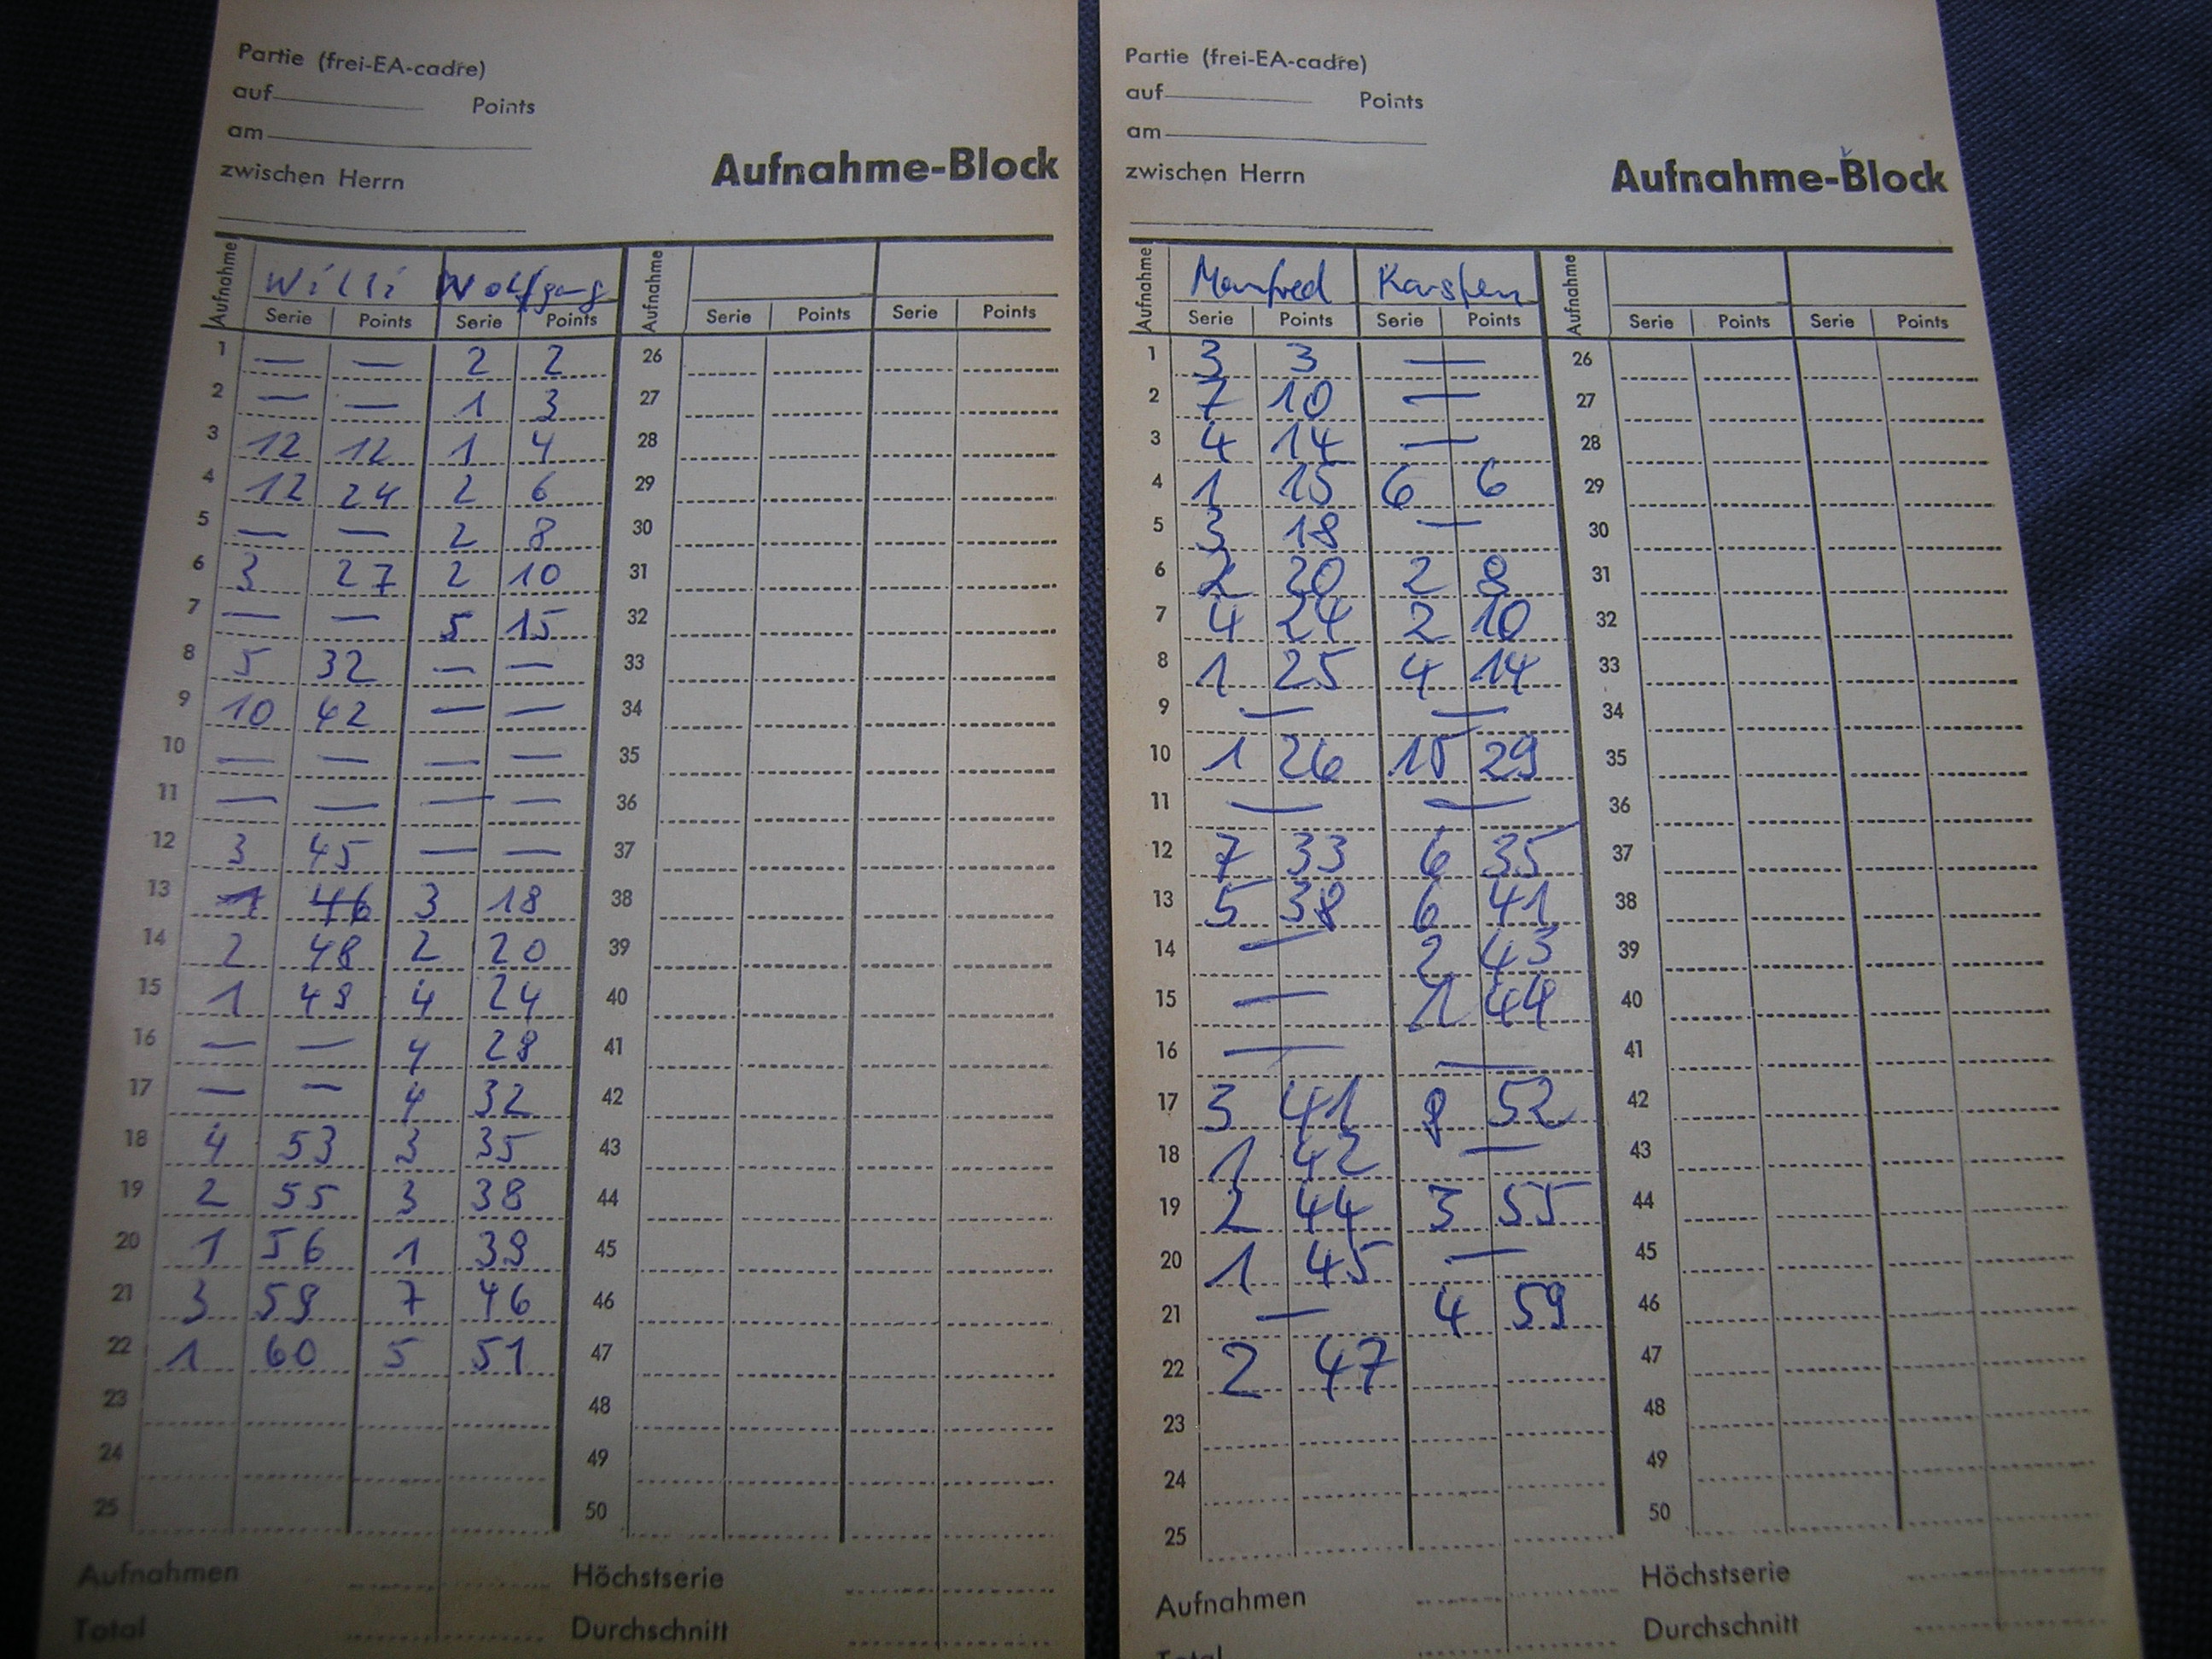 Partie (frei-EA-cadre)
auf Points
am
zwischen Herrn
Aufnahme-Block
Aufnahme Willi Wolfgang Aufnahme
Serie Points Serie Points Serie Points Serie Points
1 — — 2 2 26
2 — — 1 3 27
3 12 12 1 4 28
4 12 24 2 6 29
5 — — 2 8 30
6 3 27 2 10 31
7 — — 5 15 32
8 5 32 — — 33
9 10 42 — — 34
10 — — — — 35
11 — — — — 36
12 3 45 — — 37
13 1 46 3 18 38
14 2 48 2 20 39
15 1 49 4 24 40
16 — — 4 28 41
17 — — 4 32 42
18 4 53 3 35 43
19 2 55 3 38 44
20 1 56 1 39 45
21 3 59 7 46 46
22 1 60 5 51 47
23 48
24 49
25 50
Aufnahmen Höchstserie
Total Durchschnitt
Partie (frei-EA-cadre)
auf Points
am
zwischen Herrn
Aufnahme-Block
Aufnahme Manfred Karsten Aufnahme
Serie Points Serie Points Serie Points Serie Points
1 3 3 — 26
2 7 10 — 27
3 4 14 — 28
4 1 15 6 6 29
5 3 18 — 30
6 2 20 2 8 31
7 4 24 2 10 32
8 1 25 4 14 33
9 — — 34
10 1 26 15 29 35
11 — — 36
12 7 33 6 35 37
13 5 38 6 41 38
14 — 2 43 39
15 — 1 44 40
16 — — 41
17 3 41 8 52 42
18 1 42 — 43
19 2 44 3 55 44
20 1 45 — 45
21 — 4 59 46
22 2 47 47
23 48
24 49
25 50
Aufnahmen Höchstserie
Total Durchschnitt